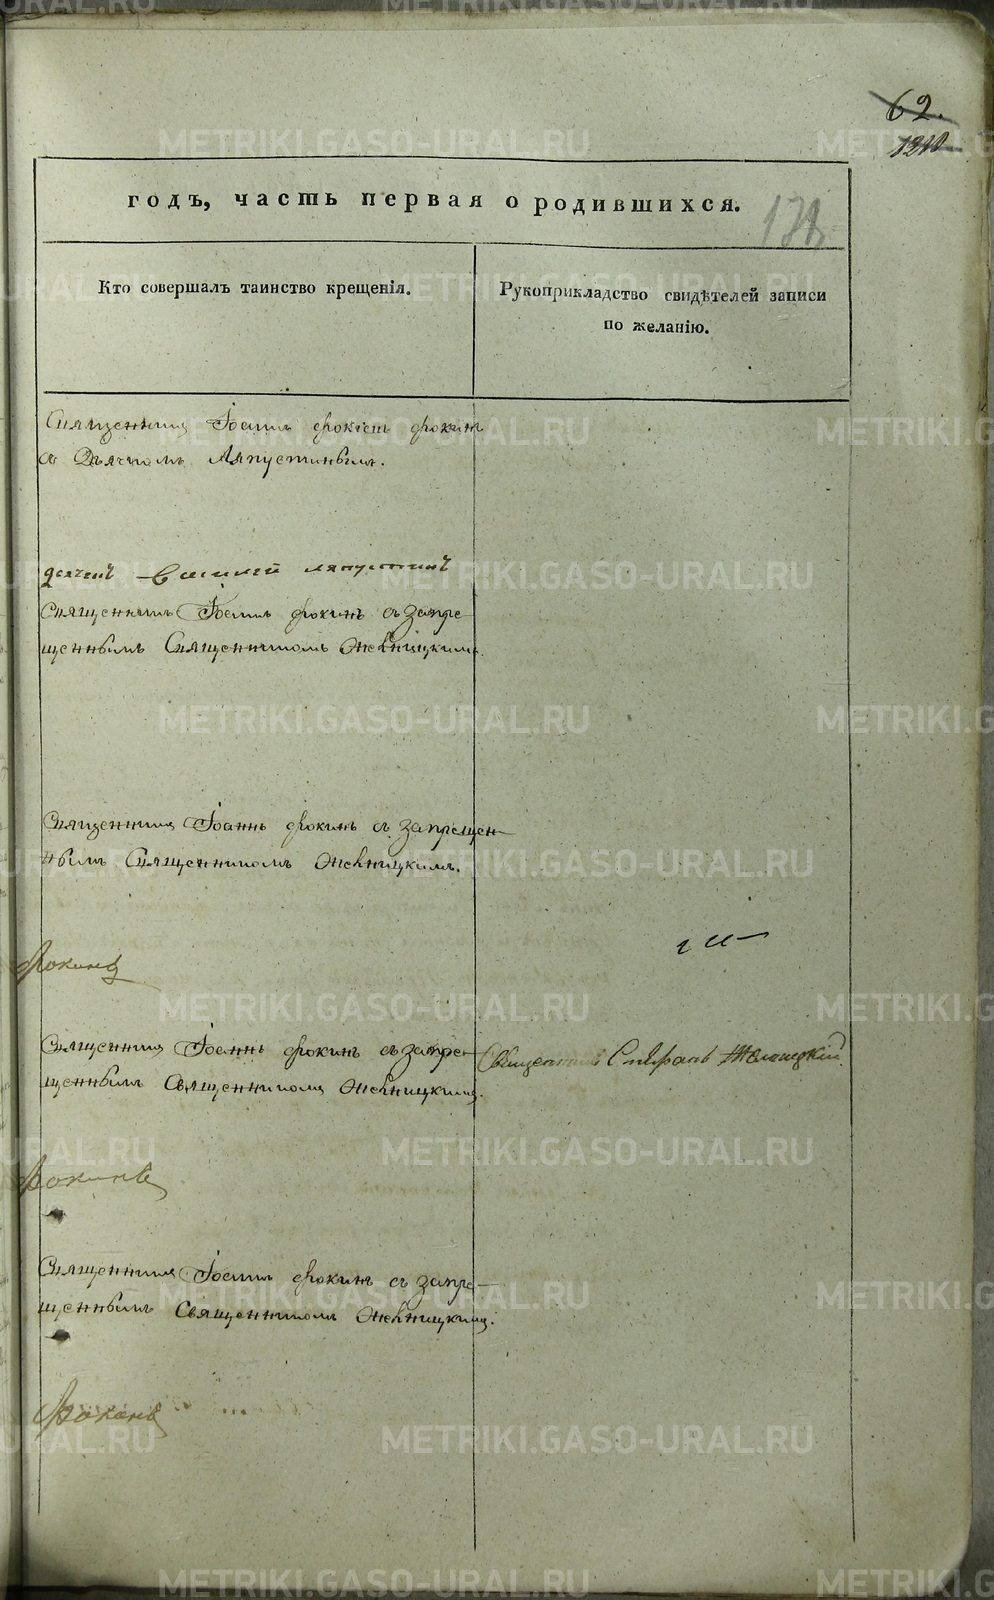 62.
годъ, часть первая о родившихся.
Кто совершалъ таинство крещенія.
Рукоприкладство свидѣтелей записи
по желанію.
Священникъ Іоаннъ Фокинъ
съ Дьячкомъ Ляпустинымъ.
дьячекъ Василей Ляпустинъ
Священникъ Іоаннъ Фокинъ съ запре
щеннымъ Священникомъ
Священникъ Іоаннъ Фокинъ съ запрещен-
нымъ Священникомъ
Фокинъ
Священникъ Іоаннъ Фокинъ съ запре
щеннымъ Священникомъ
Священникъ
Фокинъ
Священникъ Іоаннъ Фокинъ съ запре-
щеннымъ Священникомъ
Фокинъ
METRIKI.GASO-URAL.RU